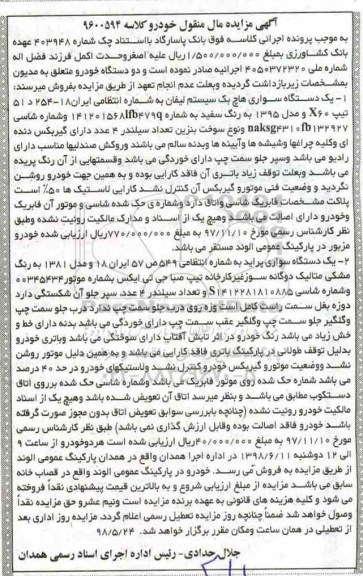 آگهی مزایده مال منقول خودرو کلاسه ۹۶۰۰۵۹۴
به موجب پرونده اجرائی کلاسه فوق بانک پاسارگاد بااستناد چک شماره ۴۰۳۹۴۸ عهده
بانک کشاورزی بمبلغ ۱/۵۰۰/۰۰۰/۰۰۰ریال علیه اصغروحدت اکمل فرزند فضل اله
شماره ملی ۴۰۵۰۳۷۲۳۲۰ اجرائیه صادر نموده است و دو دستگاه خودرو متعلق به مدیون
بمشخصات زیربازداشت گردیده وبعلت عدم انجام تعهد از طریق مزایده بفروش میرسند:
۱- یک دستگاه سواری هاچ بک سیستم لیفان به شماره انتظامی ایران۱۸-۲۵۴ د ۵۱
تیپ X۶۰ و مدل ۱۳۹۵ به رنگ سفید به شماره ۱۴۱۲۰۱۵۶۸lfb۴۷۹q وشماره شاسی
naksg۴۳۱۰fb۱۳۲۹۲۷ ونوع سوخت بنزین تعداد سیلندر ۴ عدد دارای گیربکس دنده
ای وکلیه چراغها وشیشه ها وآیینه ها وبدنه سالم می باشند وروکش صندلیها مناسب دارای
رادیو می باشد وسپر جلو سمت چپ دارای خوردگی می باشد وقسمتهایی از آن رنگ پریده
می باشدو بعلت توقف زیاد باتری آن فاقد کارایی بوده و به همین جهت خودرو روشن
نگردید و وضعیت فنی موتورو گیربکس آن کنترل نشد کارایی لاستیک ها ۵۰٪ است
پلاکت مشخصات فابریک شاسی واتاق دارد وشماره ی حک شده شاسی و موتور آن فابریک
وخودرو دارای اصالت می باشد وهیچ یک از اسناد و مدارک مالکیت روئیت نشده وطبق
نظر کارشناس رسمی مورخ ۹۷/۱۱/۱۰ به مبلغ ۷۷۰/۰۰۰/۰۰۰ریال ارزیابی شده خودرو
مزبور در پارکینگ عمومی الوند مستقر می باشد.
۲- یک دستگاه سواری پراید به شماره انتظامی ۵۴۹ص۵۷ ایران ۱۸ و مدل ۱۳۸۱ به رنگ
مشکی متالیک دوگانه سوزغیرکارخانه تیپ صبا جی تی ایکس بشماره موتور ۰۰۳۴۵۴۳۴
وشماره شاسی S۱۴۱۲۲۸۱۸۱۰۸۸۵ و تعداد سیلندر ۴ عدد. سپر جلو آن شکستگی دارد
دوره بغل سمت راست کامل است وزه روی درب جلو سمت چپ ندارد درب جلو سمت چپ
وگلگیر جلو سمت چپ وگلگیر عقب سمت چپ دارای خوردگی می باشد بدنه دارای خط و
خش زیاد می باشد رنگ خودرو در اثر تابش آفتاب دارای سوختگی می باشد وباتری خودرو
بدلیل توقف طولانی در پارکینگ باتری فاقد کارایی می باشد و به همین دلیل موتور روشن
نشد ووضعیت موتورو گیربکس خودرو کنترل نشد ولاستیکهای خودرو در حد ۴۰ درصد
می باشد شماره حک شده روی موتور فابریک می باشد وشماره شاسی حک شده برروی اتاق
دستکوب مطابق می باشد و بنظر میرسد اتاق آن تعویض شده باشد وهیچ یک از اسناد
مالکیت خودرو روئیت نشده (چنانچه بابررسی سوابق تعویض اتاق بدون مجوز صورت گرفته
باشد خودرو فاقد اصالت بوده وقابل ارزش گذاری نمی باشد) طبق نظر کارشناس رسمی
مورخ ۹۷/۱۱/۱۰ به مبلغ ۴۰/۰۰۰/۰۰۰ریال ارزیابی شده است هردوخودرو از ساعت ۹
الی ۱۲ دوشنبه ۱۳۹۸/۶/۱۱ در اداره اجرا همدان واقع در همدان پارکینگ عمومی الوند
از طریق مزایده به فروش می رسد. خودرو در پارکینگ عمومی الوند واقع در قصاب خانه
سابق می باشد مزایده از مبلغ ارزیابی شروع و به بالاترین قیمت پیشنهادی نقداً فروخته
می شود و کلیه هزینه های قانونی به عهده برنده مزایده است ونیم عشرو حق مزایده نقداً
وصول خواهد شد ضمناً چنانچه روز مزایده تعطیل رسمی اعلام گردد. مزایده روز اداری بعد
از تعطیلی در همان ساعت ومکان مقرر برگزار خواهد شد. ۹۸/۵/۲۴
جلال حدادی- رئیس اداره اجرای اسناد رسمی همدان